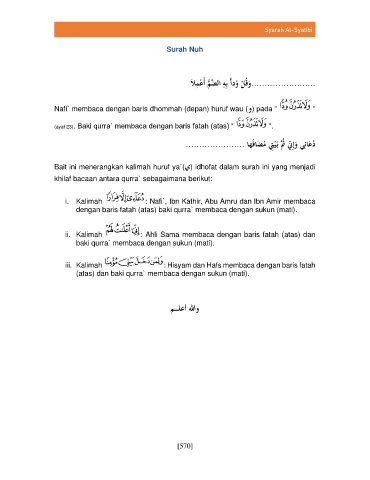 Syarah Al-Syatibi
Surah Nuh
........................وَقُلْ وُدًّا بِهِ الضَّمُّ أُعْمِلَا
Nafi` membaca dengan baris dhommah (depan) huruf wau (و) pada " وَلَا تَذَرُنَّ وُدًّا "
(ayat 23). Baki qurra` membaca dengan baris fatah (atas) " وَلَا تَذَرُنَّ وَدًّا ".
دُعَائِي وَإِنِّي ثُمَّ بَيْتِيَ مُضَافُهَا ......................
Bait ini menerangkan kalimah huruf ya`(ي) idhofat dalam surah ini yang menjadi
khilaf bacaan antara qurra` sebagaimana berikut:
i. Kalimah دُعَآءِىٓ إِلَّا فِرَارًا : Nafi`, Ibn Kathir, Abu Amru dan Ibn Amir membaca
dengan baris fatah (atas) baki qurra` membaca dengan sukun (mati).
ii. Kalimah إِنِّىٓ أَعْلَنتُ لَهُمْ : Ahli Sama membaca dengan baris fatah (atas) dan
baki qurra` membaca dengan sukun (mati).
iii. Kalimah وَلِمَن دَخَلَ بَيْتِىَ مُؤْمِنًا : Hisyam dan Hafs membaca dengan baris fatah
(atas) dan baki qurra` membaca dengan sukun (mati).
والله اعلـــم
[570]